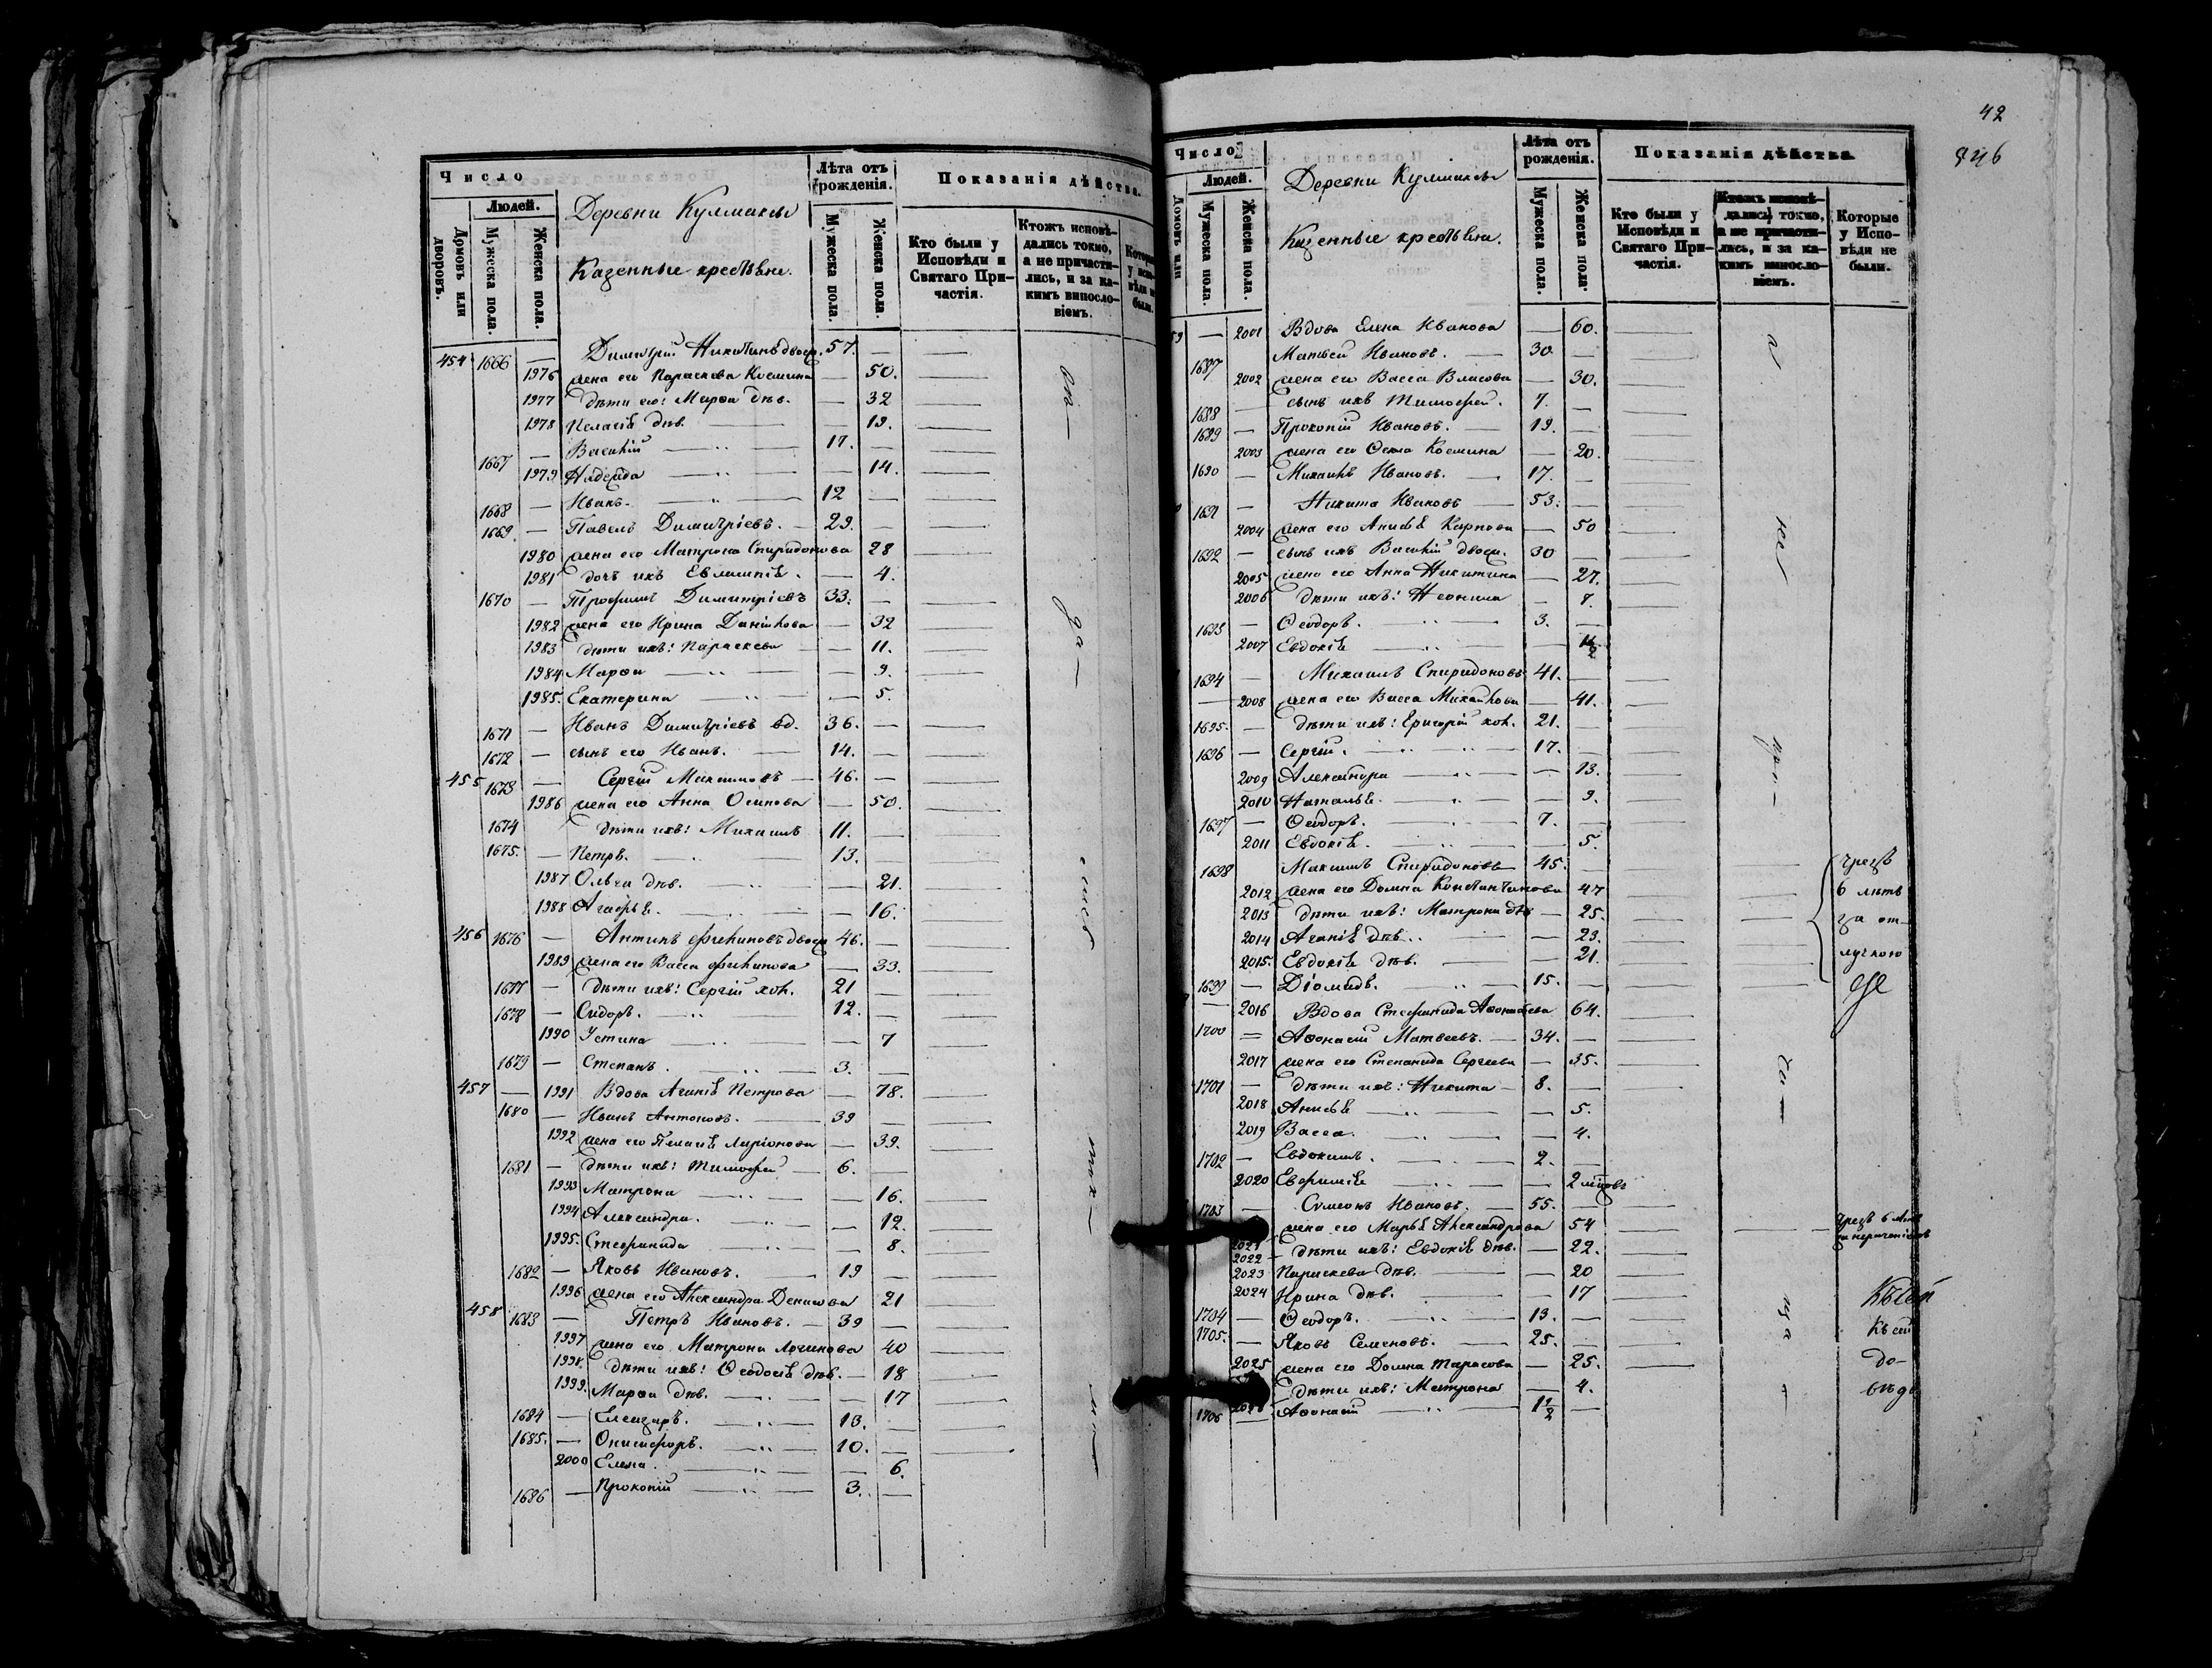 Число
Людей.
Домовъ или дворовъ.
Мужеска пола.
Женска пола.
Деревни Кулмаксы
Казенные крестьяне.
Лѣта отъ рожденія.
Мужеска пола.
Женска пола.
Показанія дѣйства.
Кто были у Исповѣди и Святаго Причастія.
Ктожъ исповѣдались токмо, а не причастились, и за какимъ винословіемъ.
454 1666 — Димитрій Никитинъ двоеж. 57. —
1976 жена его Параскева Космина — 50.
1977 дѣти его: Марѳа дѣв. — 32
1978 Пелагія дѣв. — 19.
1667 — Василій 17. —
1979 Надежда — 14.
1668 — Иванъ. 12 —
1669 — Павелъ Димитріевъ. 29. —
1980 жена его Матрона Спиридонова 28
1981 дочь ихъ Евлампія. — 4.
1670 — Трофимъ Димитріевъ 33. —
1982 жена его Ирина Данилова — 32
1983 дѣти ихъ: Параскева — 11.
1984 Марѳа — 9.
1985. Екатерина — 5.
1671 — Иванъ Димитріевъ вд. 36. —
1672 — сынъ его Иванъ. 14. —
455 1673 — Сергій Максимовъ 46. —
1986 жена его Анна Осипова — 50.
1674 дѣти ихъ: Михаилъ 11. —
1675. — Петръ. 13. —
1987 Ольга дѣв. — 21.
1988 Агафья. — 16.
456 1676 — Антипъ двоеж 46. —
1989 жена его Васса — 33.
1677 — дѣти ихъ: Сергій хол. 21 —
1678 — Сидоръ. 12. —
1990 Устина — 7
1679 — Степанъ. 3. —
457 — 1991 Вдова Агапія Петрова — 78.
1680 — Иванъ Антоновъ. 39 —
1992 жена его Пелагія Ларіонова — 39.
1681 — дѣти ихъ: Тимофей 6. —
1993 Матрона — 16.
1994 Александра. — 12.
1995. Стефанида — 8.
1682 — Яковъ Ивановъ. 19 —
1996 жена его Александра Денисова 21
458 1683 — Петръ Ивановъ. 39 —
1997 жена его Матрона Логинова 40
1998. дѣти ихъ: Ѳеодосія дѣв. — 18
1999. Марѳа дѣв. — 17
1684 — Елеазаръ. 13. —
1685. — Онисифоръ. 10. —
2000 Елена. — 6.
1686 — Прокопій 3. —
42
846
Число
Людей.
Домовъ или
Мужеска пола.
Женска пола.
Деревни Кулмаксы
Казенные крестьяне.
Лѣта отъ рожденія.
Мужеска пола.
Женска пола.
Показанія дѣйства.
Кто были у Исповѣди и Святаго Причастія.
Ктожъ исповѣдались токмо, а не причастились, и за какимъ винословіемъ.
Которые у Исповѣди не были.
— 2001 Вдова Елена Иванова — 60.
1687 Матвей Ивановъ. 30. —
2002 жена его Васса Власова — 30.
1688 — сынъ ихъ Тимофей. 7. —
1689 — Прокопій Ивановъ. 19. —
2003 жена его Ѳекла Космина — 20.
1690 — Михаилъ Ивановъ. 17. —
1691 — Никита Ивановъ 53. —
2004 жена его Анисья Карпова — 50
1692 — сынъ ихъ Василій двоеж. 30 —
2005 жена его Анна Никитина — 27.
2006 дѣти ихъ: Неонила — 7.
1693 — Ѳеодоръ. 3. —
2007 Евдокія — 1/2
1694 — Михаилъ Спиридоновъ 41. —
— 2008 жена его Васса Михайлова — 41.
1695. — дѣти ихъ: Григорій хол. 21. —
1696 — Сергій. 17. —
2009 Александра — 13.
2010 Наталья. — 9.
1697 — Ѳеодоръ. 7. —
2011 Евдокія. — 5.
1698 Максимъ Спиридоновъ 45. — чрезъ
2012 жена его Домна Константинова 47 6 лѣтъ
2013 дѣти ихъ: Матрона дѣв — 25. за от-
2014 Агапія дѣв. — 23.
2015. Евдокія дѣв. — 21. лучкою
1699 — Діомидъ. 15. —
2016 Вдова Стефанида Аѳонасьева 64.
1700 — Аѳонасій Матвеевъ. 34. —
2017 жена его Степанида Сергеева — 35.
1701 — дѣти ихъ: Никита 8. —
2018 Анисья — 5.
2019 Васса. — 4.
1702 — Евдокимъ. 2. —
2020 Евфимія — 2 мѣсяцовъ
1703 — Сѵмеонъ Ивановъ. 55. —
2021 жена его Марья Александрова 54 чрезъ 6 лѣтъ
2022 дѣти ихъ: Евдокія дѣв. — 22.
2023 Параскева дѣв. — 20
2024 Ирина дѣв. — 17
1704 — Ѳеодоръ. 13. —
1705. — Яковъ Семеновъ. 25. —
2025 жена его Домна Тарасова — 25.
дѣти ихъ: Матрона — 4.
1706 Аѳонасій 1 1/2 —